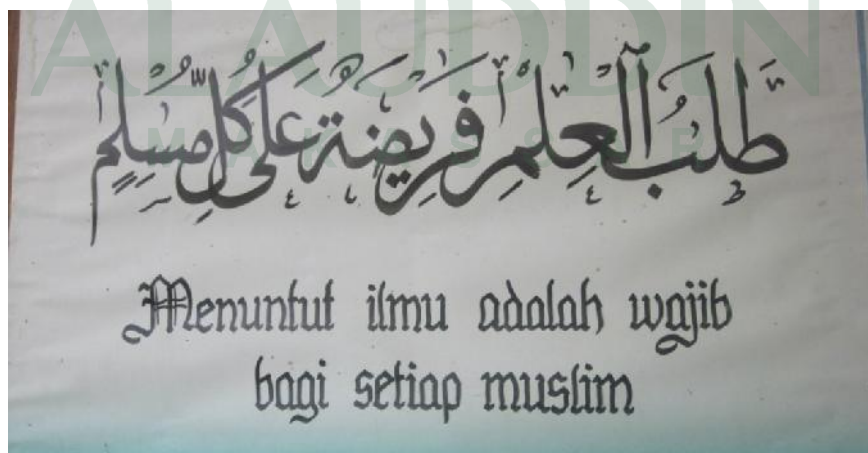 ALAUDDIN
MAKASSAR
طَلَبُ الْعِلْمِ فَرِيْضَةٌ عَلَى كُلِّ مُسْلِمٍ
Menuntut ilmu adalah wajib
bagi setiap muslim